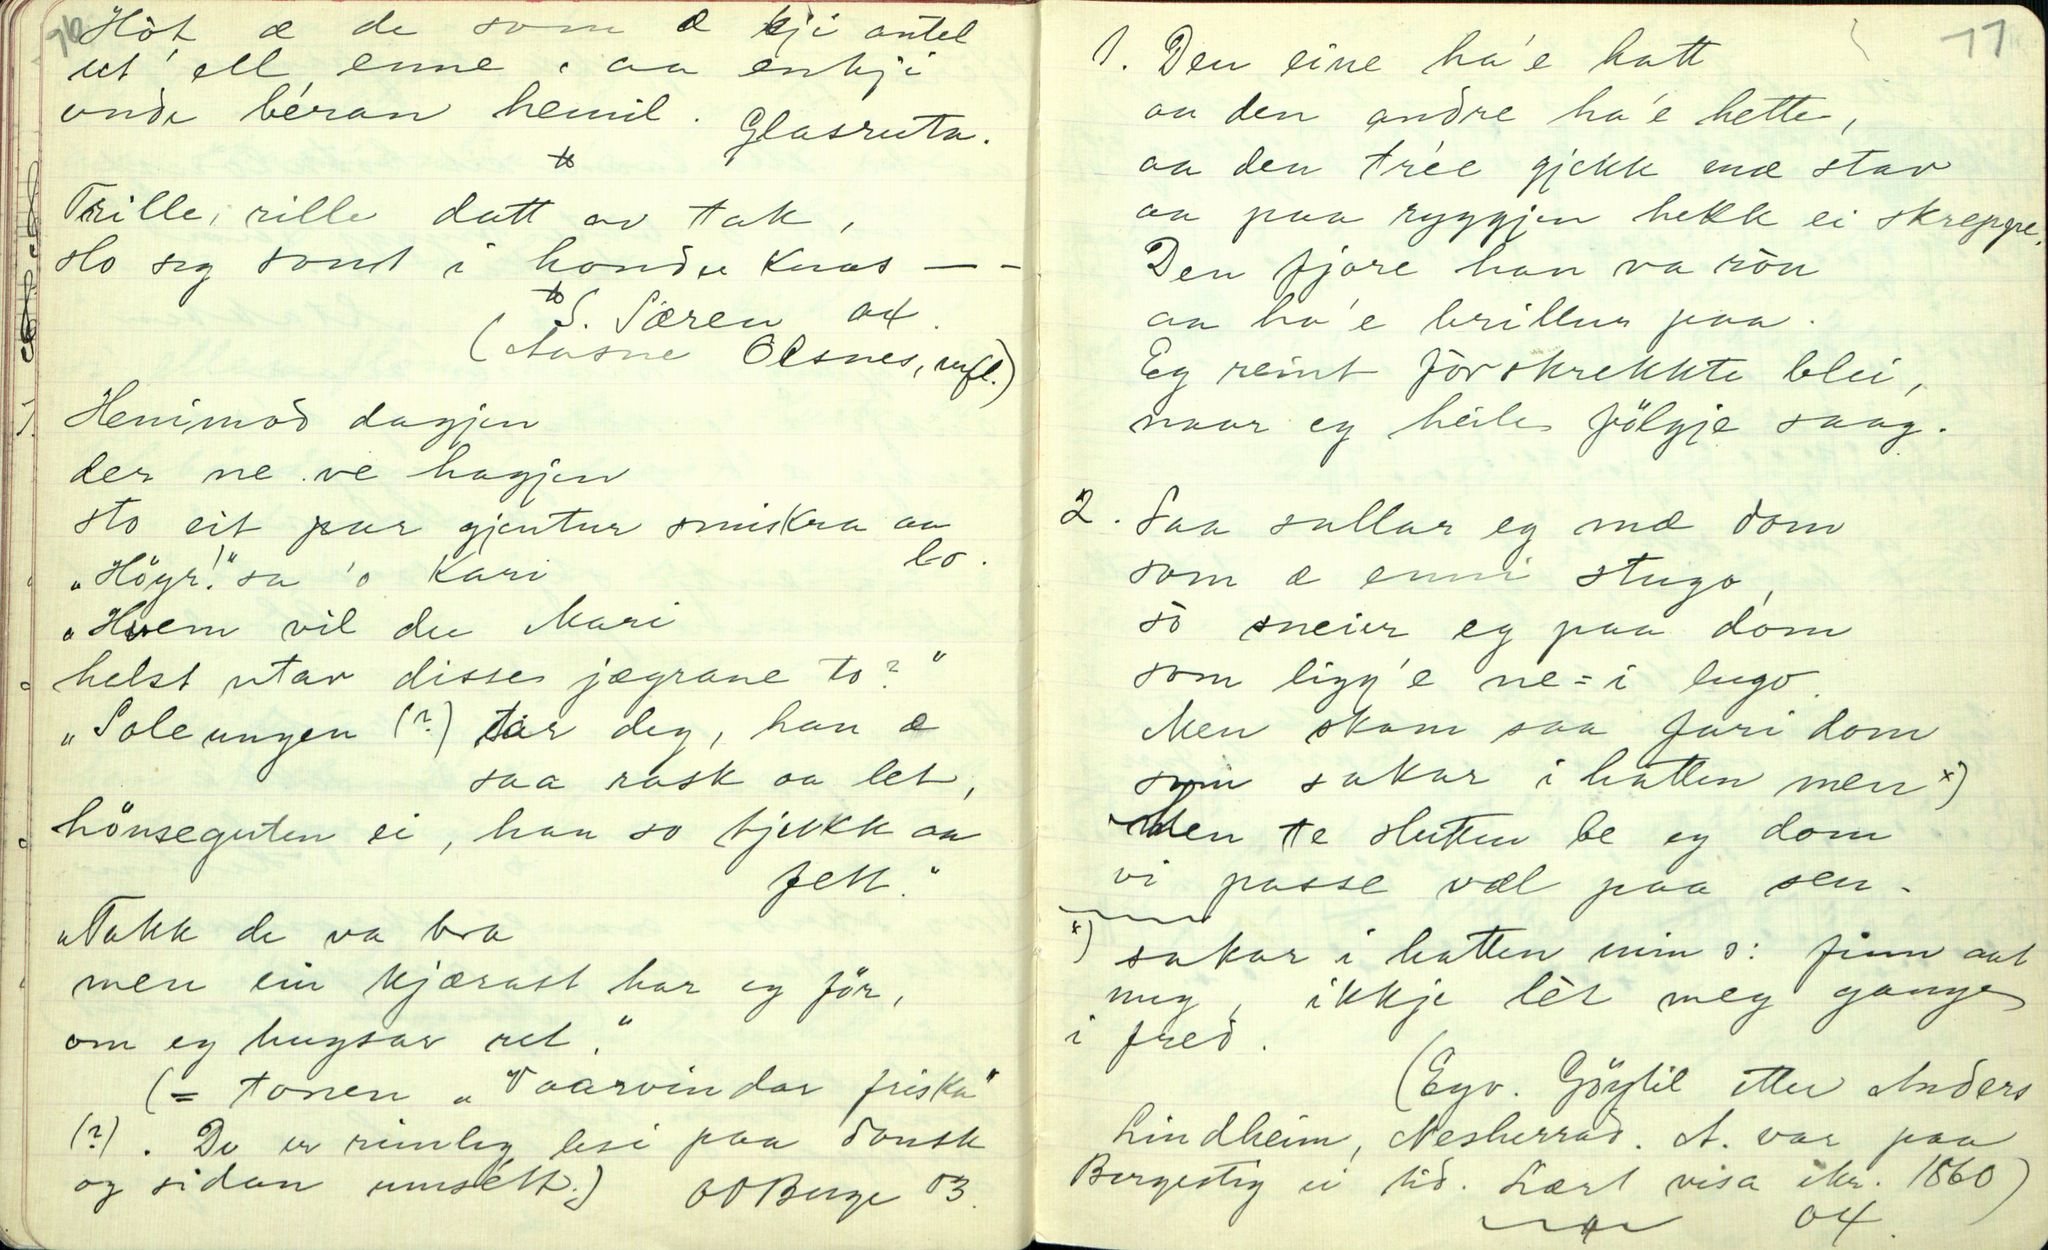 96
Höt æ de som æ kji antel
ut ell enne, aa enkji
onde béran hemil. Glasruta.
Trille, rille datt av tak,
slo seg sont i hondre knas — -
S. Særen 04.
(Aasne Olsnes, mfl.)
Henimod dagjen
der ne ve hagjen
sto eit par gjentur smiskra aa
lo.
„Höyr!" sa 'o Kari
„Hvem vil du Mari
helst utav disse jægrane to?"
„Soleungen (?) tar deg, han æ
saa rask aa let,
hönseguten ei, han so tjukk aa
fett."
„Takk de va bra
men ein kjærast har eg för,
om eg hugsar ret."
(= tonen „Vaarvindar friska"
(?). De er rimleg lesi paa dansk
og sidan umsétt.) OOBerge 03.
11
1. Den eine ha'e hatt
aa den andre ha'e hette,
aa den trée gjekk mæ stav
aa paa ryggjen hekk ei skreppe.
Den fjore han va rön
aa ha'e brillur paa.
Eg reint förskrekkte blei,
naar eg heile fölgje saag.
2. Saa sullar eg mæ dom
som æ enni stugo,
so sneier eg paa dom
som ligg'e ne=i lugo.
Men skam saa fari dom
som sakar i hatten men x)
Men te slutten be eg dom
vi passe væl paa sen.
x) sakar i hatten min ɔ: finn aat
meg, ikkje lèt meg gange
i fred.
(Egv. Göytil etter Anders
Lindheim, Nesherrad. A. var paa
Borgestig ei tid. Lært visa ikr. 1860)
04.